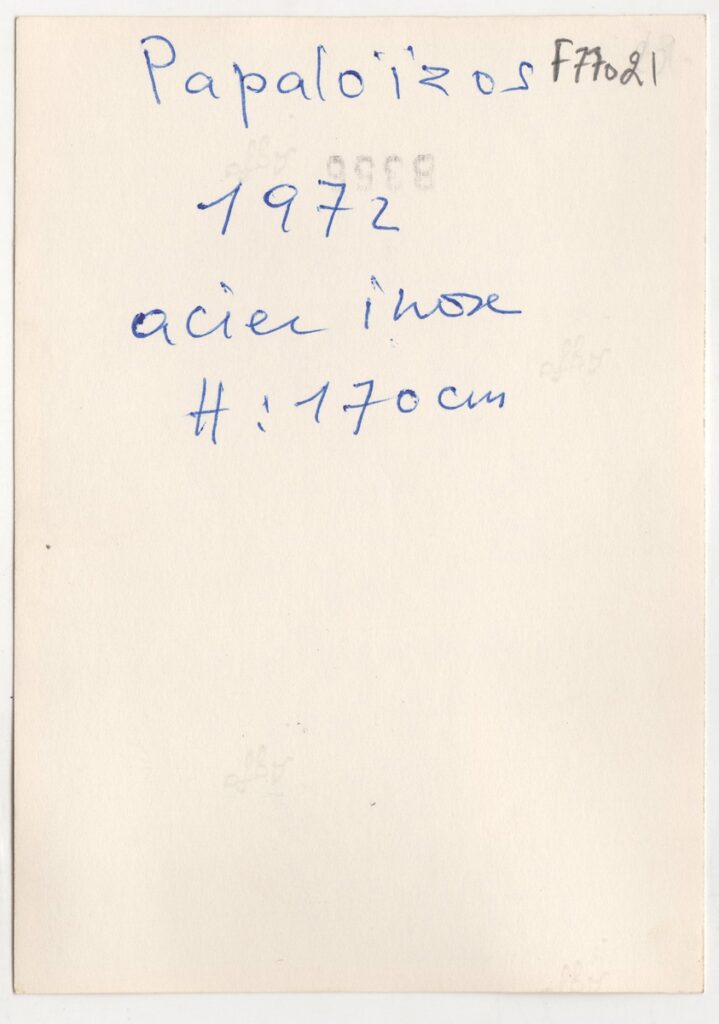 Papaloïzos F77021
1972
acier inox
H : 170 cm